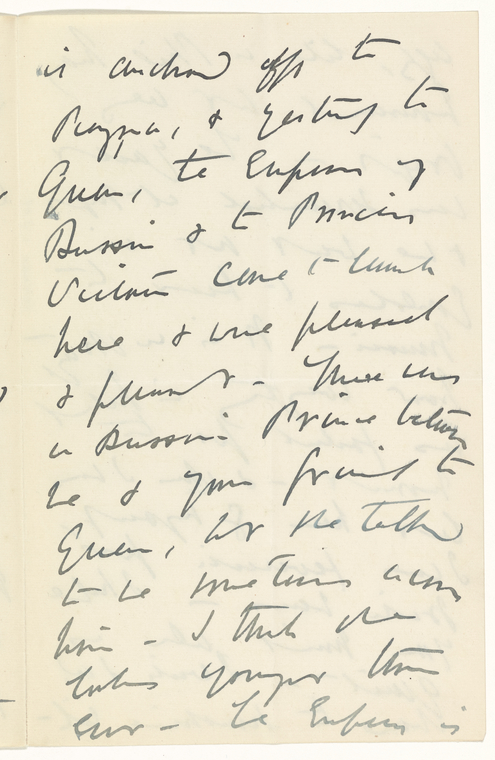 is anchored off the
Piraeus, & yesterday the
Queen, the Empress of
Russia & the Princess
Victoria came to lunch
here & were pleased
& pleasant - There was
a Russian Prince between
me & your friend the
Queen, but she talked
to me sometimes across
him - I think she
looks younger than
ever - The Empress is